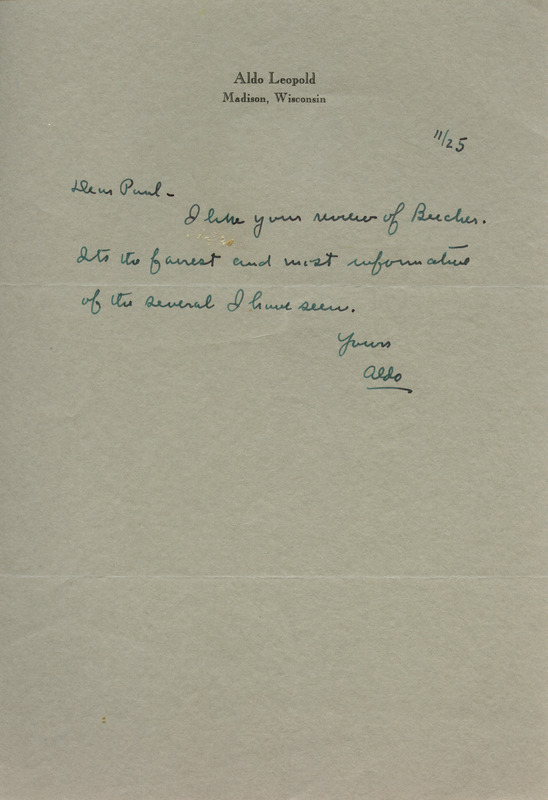 Aldo Leopold
Madison, Wisconsin
11/25
Dear Paul -
I like your review of Beecher.
Its the fairest and most informative
of the several I have seen.
Yours
Aldo